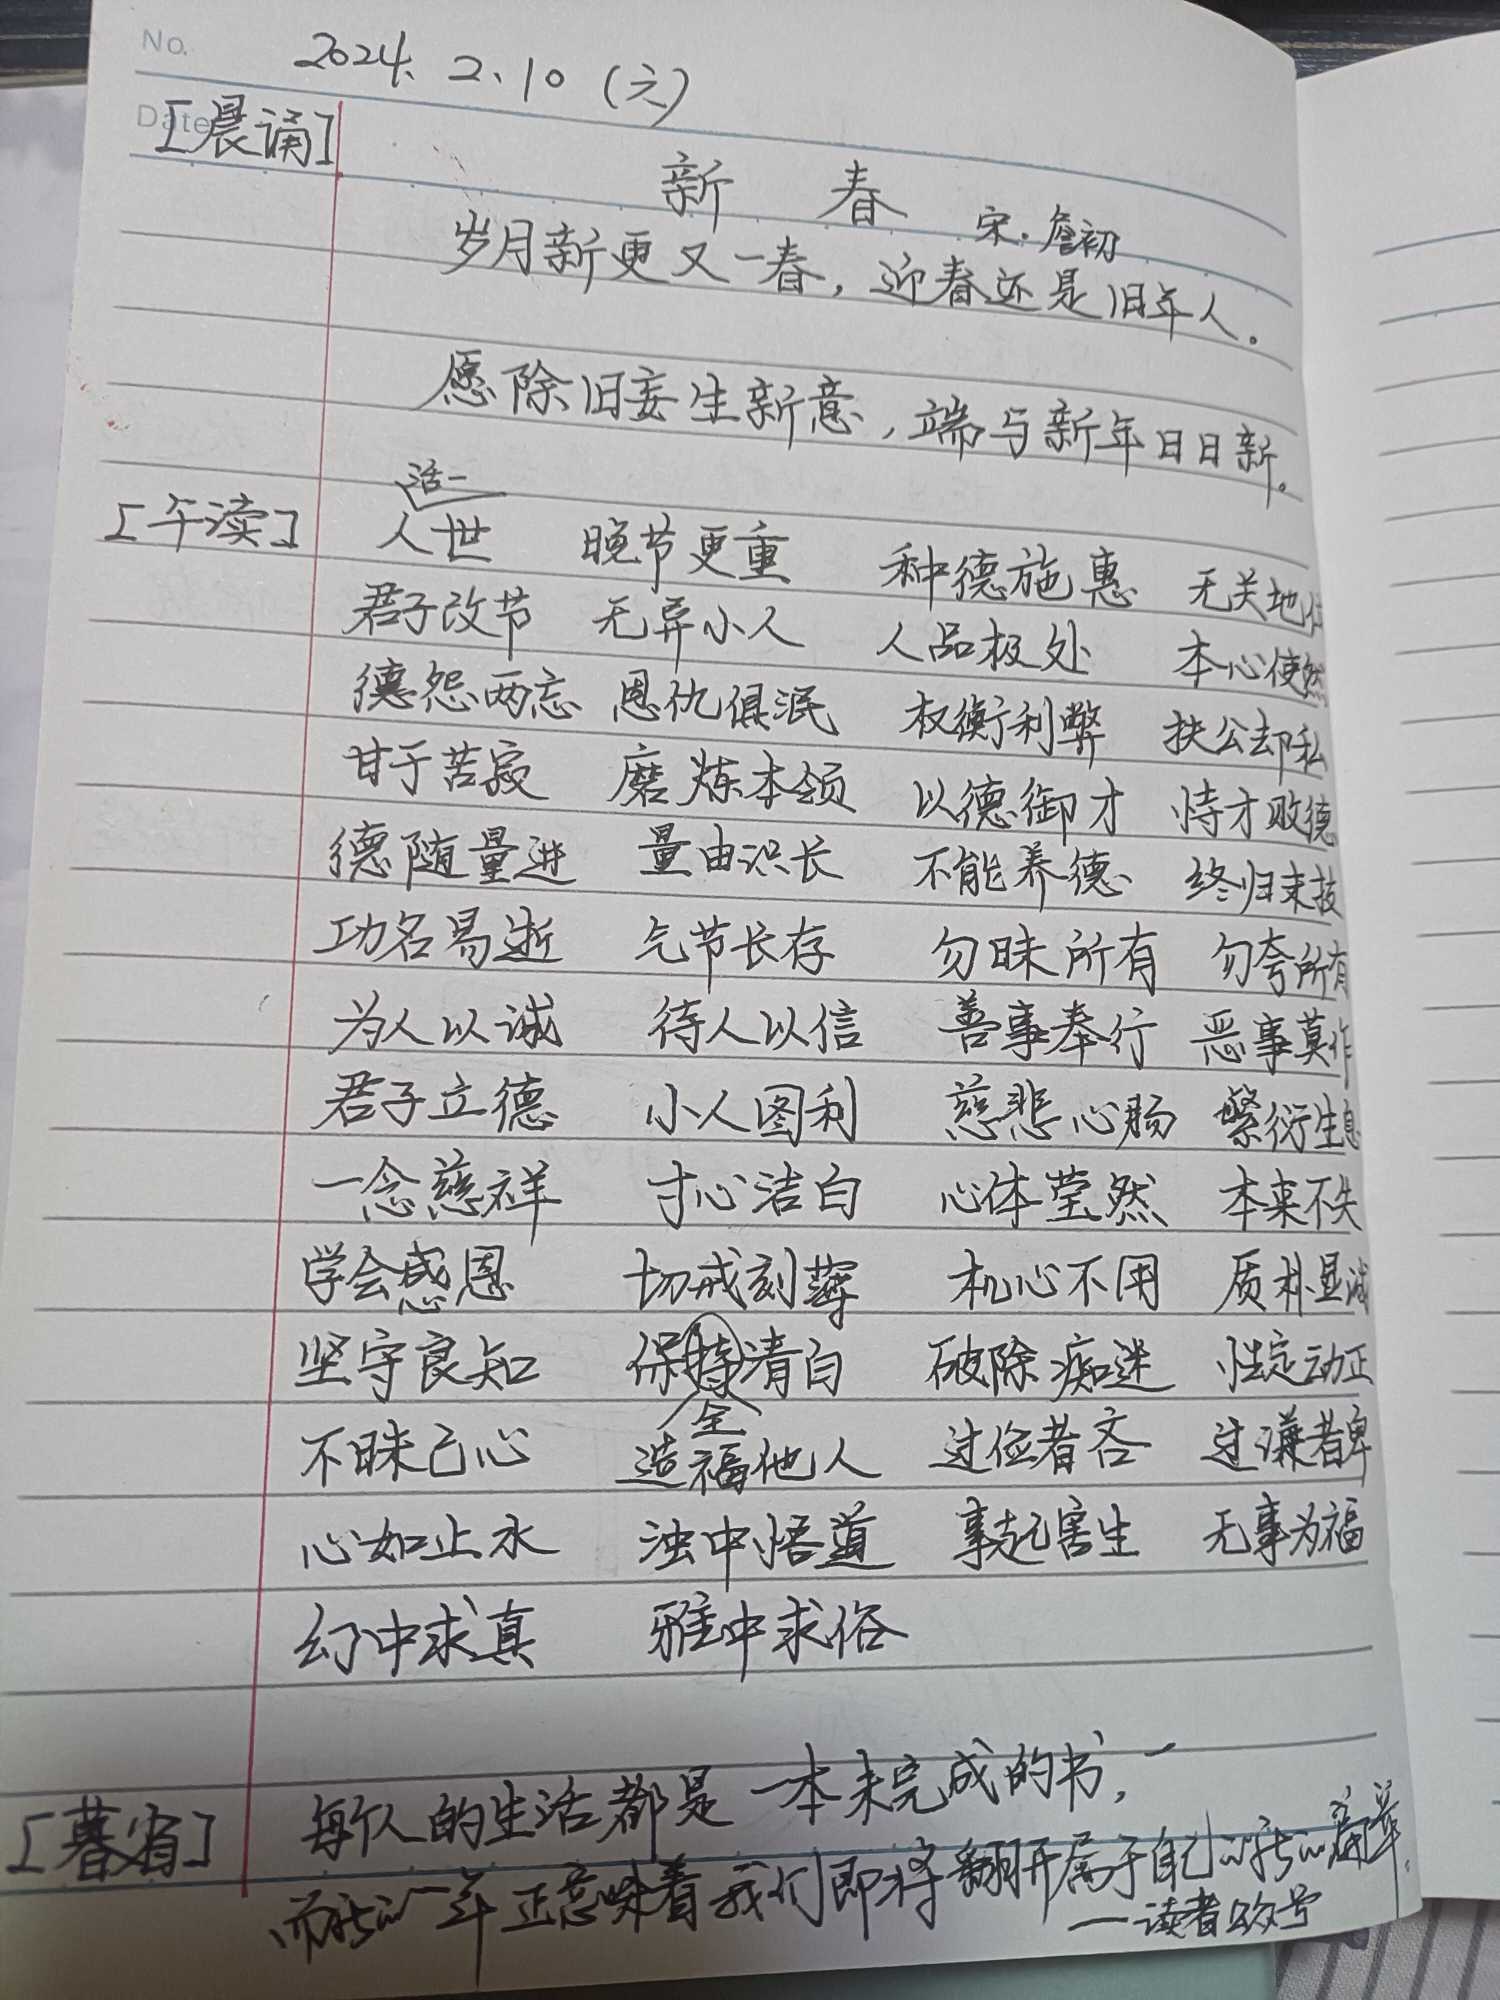 No.
2024.2.10(六)
Date
[晨诵]
新 春
宋·詹初
岁月新更又一春，迎春还是旧年人。
愿除旧妄生新意，端与新年日日新。
活一
[午读] 人世 晚节更重 种德施惠 无关地位
君子改节 无异小人 人品极处 本心使然
德怨两忘 恩仇俱泯 权衡利弊 扶公却私
甘于苦寂 磨炼本领 以德御才 恃才败德
德随量进 量由识长 不能养德 终归末技
功名易逝 气节长存 勿昧所有 勿夸所有
为人以诚 待人以信 善事奉行 恶事莫作
君子立德 小人图利 慈悲心肠 繁衍生息
一念慈祥 寸心洁白 心体莹然 本来不失
学会感恩 切戒刻薄 机心不用 质朴显诚
坚守良知 保持清白 破除痴迷 性定动正
全
不昧己心 造福他人 过俭者吝 过谦者卑
心如止水 浊中悟道 事起害生 无事为福
幻中求真 雅中求俗
[暮省] 每个人的生活都是一本未完成的书，
而新的一年正意味着我们即将翻开属于自己的新的篇章。
——读者公众号